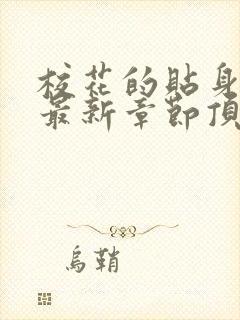 校花的貼身
最新章節頂
烏鞘